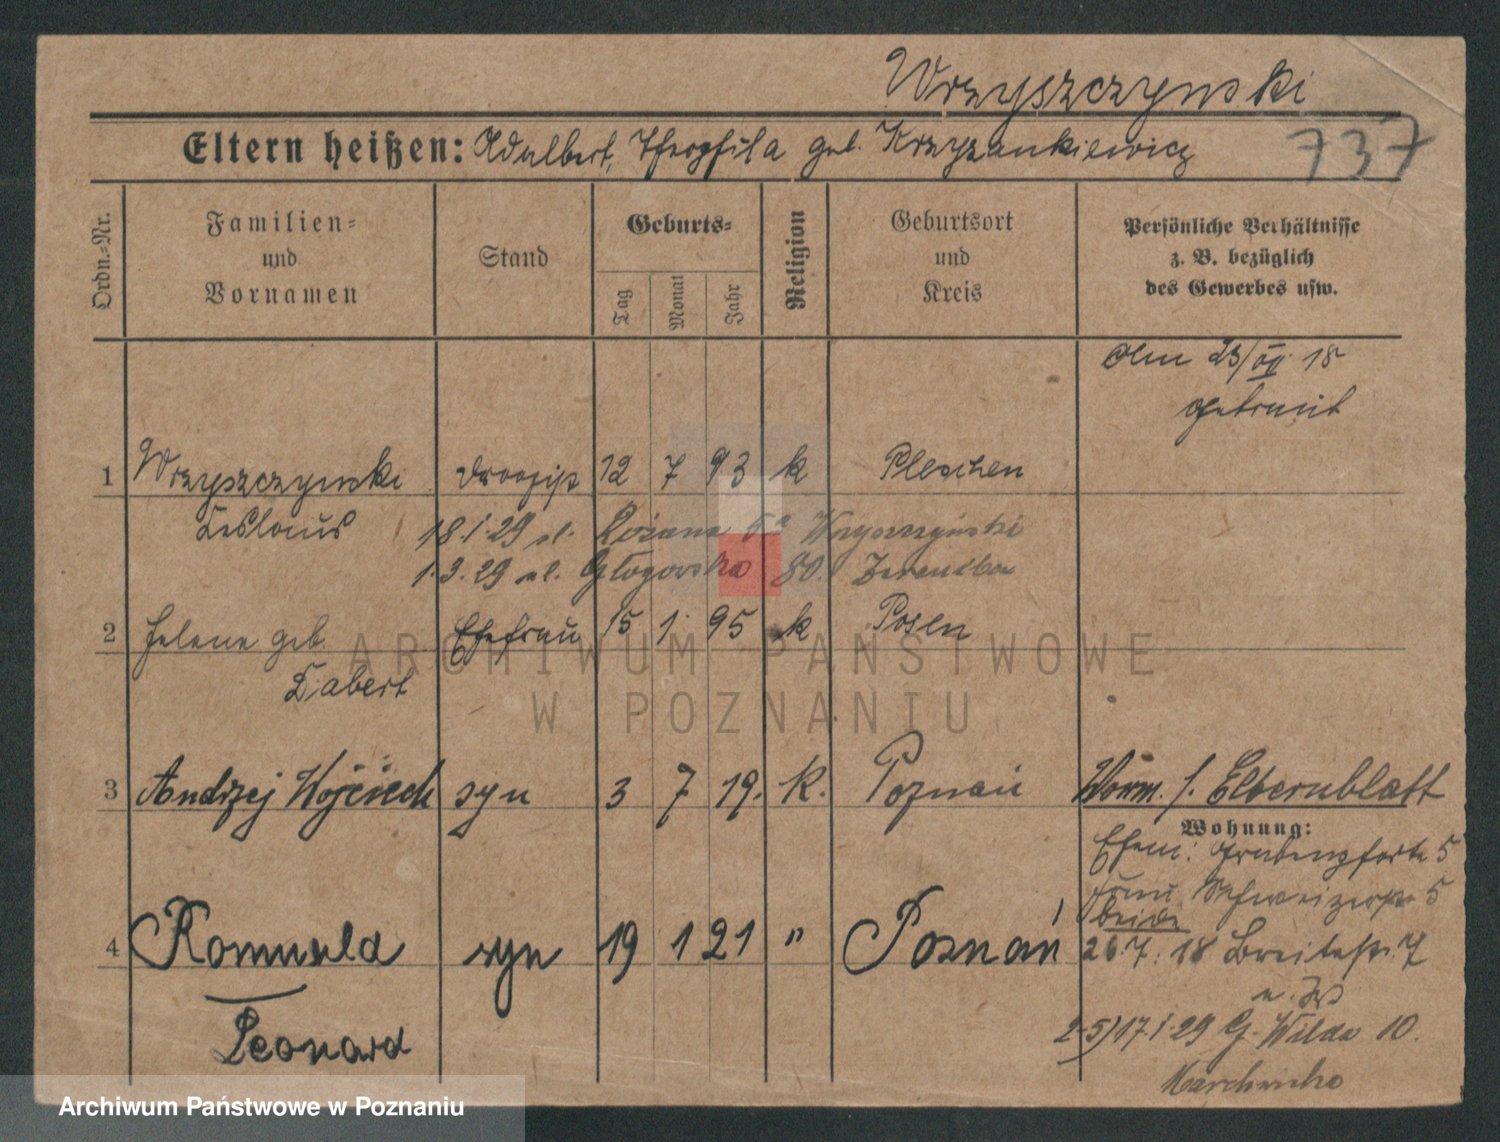 Wrzyszczynski
Eltern heißen: Adalbert, Theophila geb. Krzyzankiewicz
737
Ordn.-Nr.
Familien- und Vornamen
Stand
Geburts-
Tag
Monat
Jahr
Religion
Geburtsort und Kreis
Persönliche Verhältnisse z. B. bezüglich des Gewerbes usw.
Am 23/VII 18
getraut
1 Wrzyszczynski Drogist 12 7 93 k Pleschen
Ceslaus
18.1.29 ul. Różana 5a Wrzyszczyński
1.3.29 ul. Głogowska 80. Zaremba
2 Helene geb. Ehefrau 15 1. 95 k Posen
Dabert
3 Andrzej Wojciech syn 3 7 19. K. Poznań Worm. s. Elternblatt
Wohnung:
Ehem: Grabenpforte 5
Frau: Schweizerstr 5
beide
4 Romuald syn 19 1 21 " Poznań 26.7.18 Breitestr. 7
Leonard
2-5) 17.1.29 G. Wilda 10.
ARCHIWUM PAŃSTWOWE
W POZNANIU
Archiwum Państwowe w Poznaniu